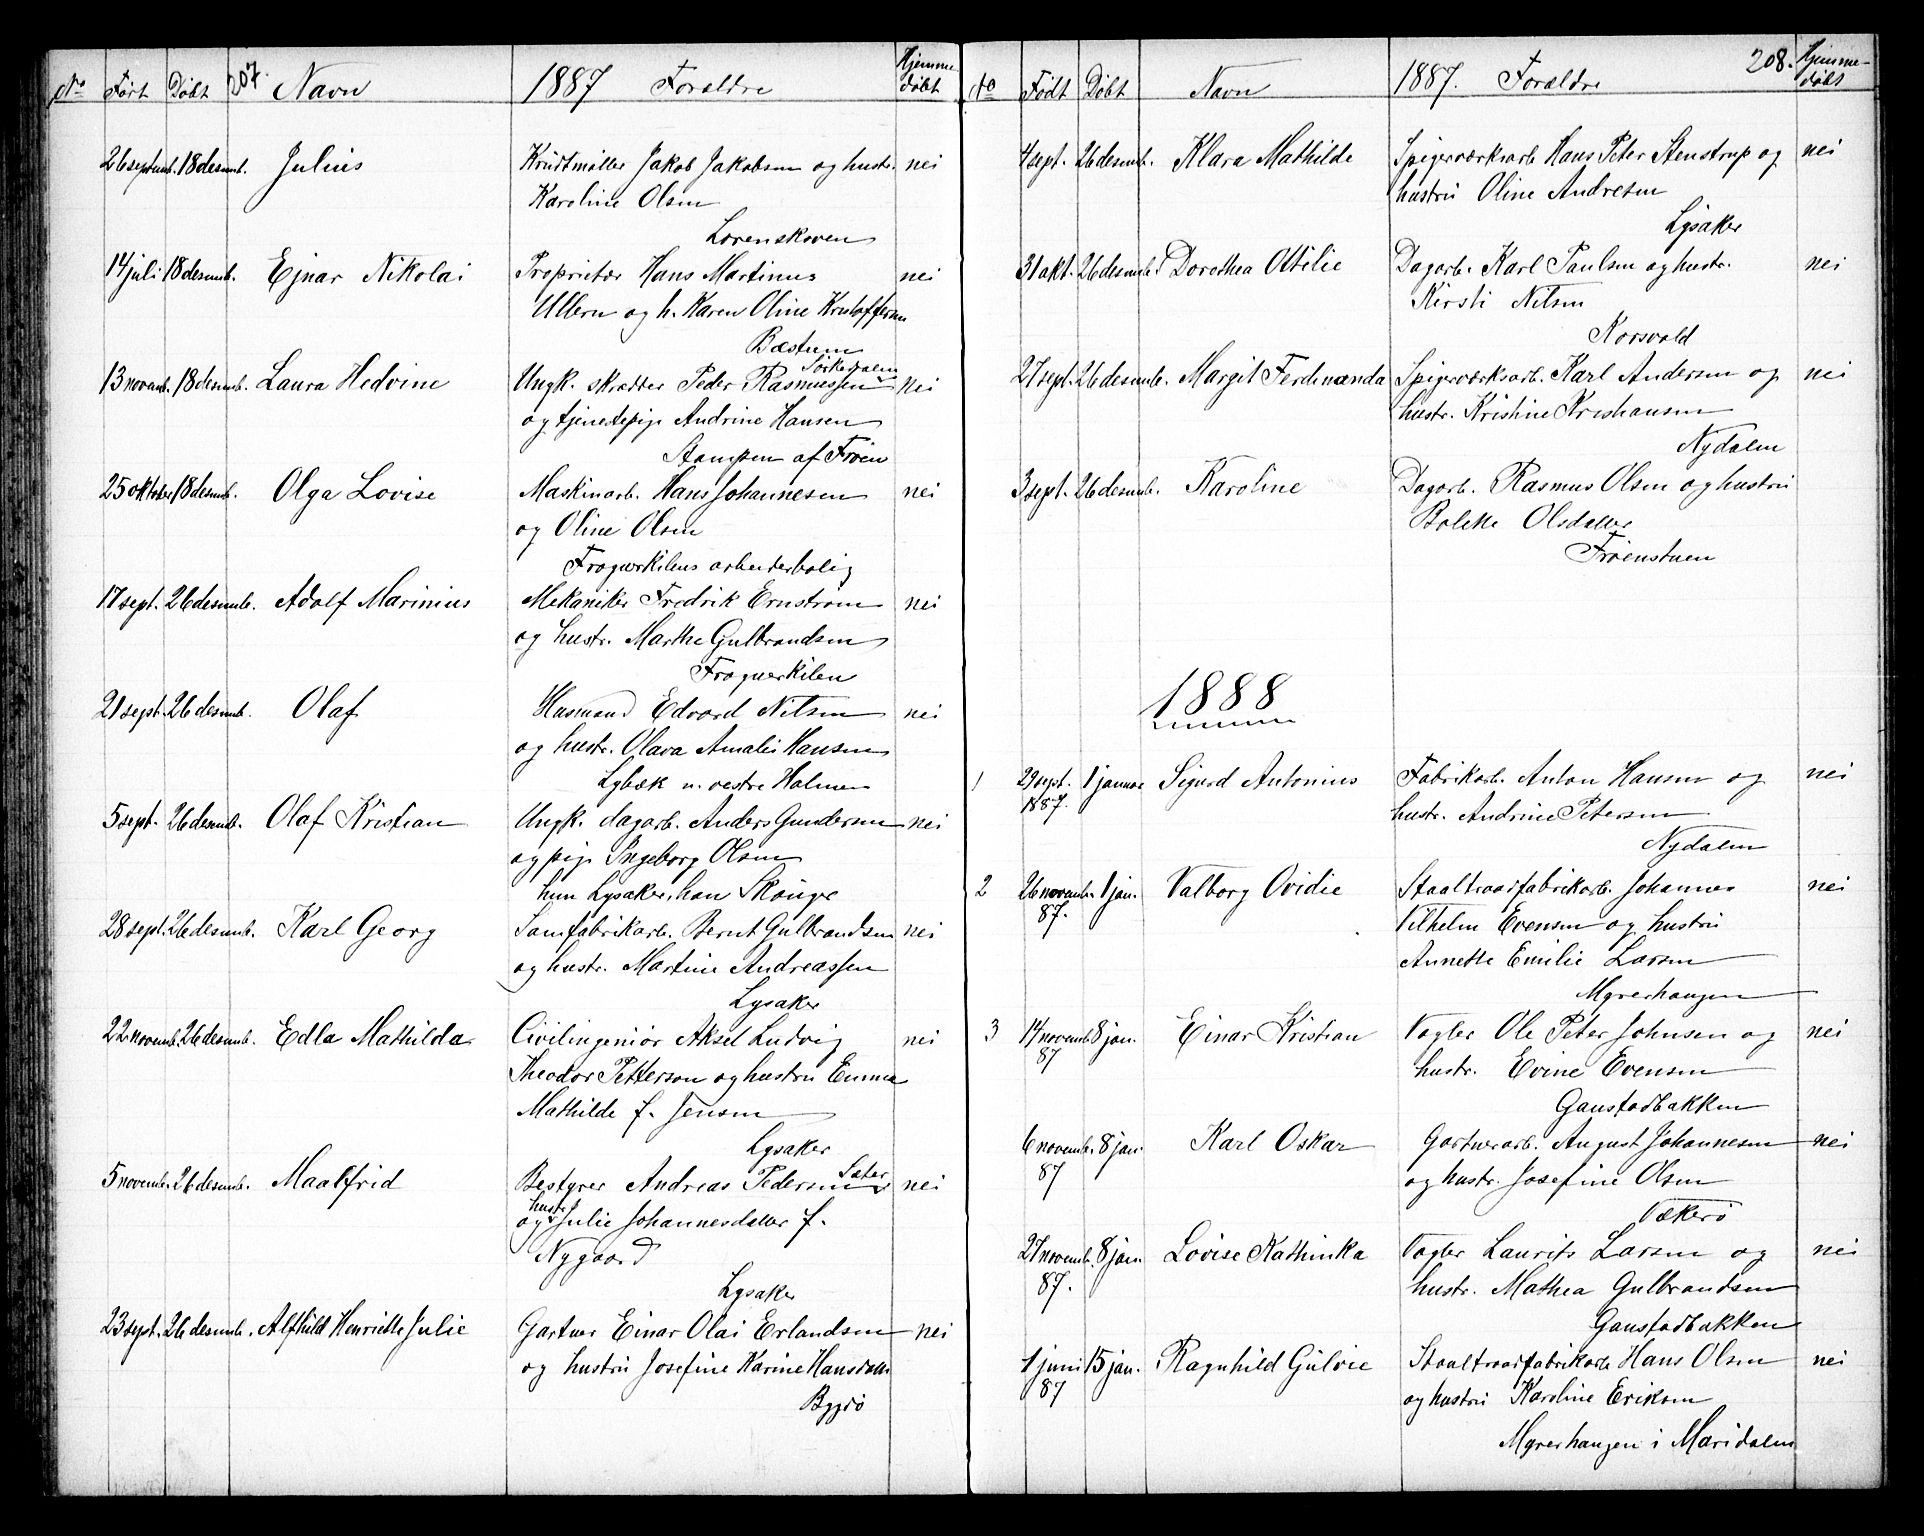 No Født Døbt 207. Navn 1887 Forældre Hjemme-
døbt
26 septemb. 18 desemb. Julius Krudtmøller Jakob Jakobsen og hustr. nei
Karoline Olsen
Lorenskoven
14 juli 18 desemb. Ejnar Nikolai Proprietær Hans Martinus nei
Ullern og h. Karen Oline Kristoffersen
Bæstum
13 novemb. 18 desemb. Laura Hedvine Ungk. skrædder Peder Rasmussen Sørkedalen nei
og tjenestepige Andrine Hansen
Stampen af Frøen
25 oktober 18 desemb. Olga Lovise Maskinarb. Hans Johannesen nei
og Oline Olsen
Frognerkilens arbeiderbolig
17 sept. 26 desemb. Adolf Marinius Mekaniker Fredrik Ernstrøm nei
og hustr. Marthe Gulbrandsen
Frognerkilen
21 sept. 26 desemb. Olaf Husmand Edvard Nilsen nei
og hustr. Olava Amalie Hansen
Lybæk u. vestre Holmen
5 sept. 26 desemb. Olaf Kristian Ungk. dagarb. Anders Gundersen nei
og pige Ingeborg Olsen
hun Lysaker, han Skøiger
28 sept. 26 desemb. Karl Georg Bernt Gulbrandsen nei
og hustr. Martine Andreassen
Lysaker
22 novemb. 26 desemb. Edla Mathilda Civilingeniör Aksel Ludvig nei
Theodor Petterson og hustru Emma
Mathilde f. Jensen
Lysaker
5 novemb. 26 desemb. Maalfrid Bestyrer Andreas Pedersen Sæter nei
og hustr. Julie Johannesdatter f.
Nygaard
Lysaker
23 sept. 26 desemb. Alfhild Henriette Julie Gartner Einar Olai Erlandsen nei
og hustru Josefine Karine Hansdatter
Bygdø
No Født Døbt Navn 1887. Forældre 208. Hjemme-
døbt
4 sept. 26 desemb. Klara Mathilde Spigerværksarb. Hans Peter Stenstrup og nei
hustru Oline Andresen
Lysaker
31 okt. 26 desemb. Dorothea Ottilie Dagarb. Karl Paulsen og hustr. nei
Kirsti Nilsen
Korsvold
27 sept. 26 desemb. Margit Ferdinanda Spigerværksarb. Karl Andersen og nei
hustr. Kristine Kristiansen
Nydalen
3 sept. 26 desemb. Karoline Dagarb. Rasmus Olsen og hustru
Bolette Olsdatter
Frøenstuen
1888
1 29 sept. 1 januar Sigurd Antonius Fabrikarb. Anton Hansen og nei
1887. hustr. Andrine Petersen
Nydalen
2 26 novemb. 1 jan. Valborg Ovidie Staaltraadfabrikarb. Johannes nei
87. Vilhelm Evensen og hustru
Annette Emilie Larsen
Myrerhaugen
3 14 novemb. 8 jan. Einar Kristian Vogter Ole Peter Johnsen og nei
87 hustr. Evine Evensen
Gaustadbakken
6 novemb. 8 jan. Karl Oskar Gartnerarb. August Johannesen nei
87 og hustr. Josefine Olsen
Vækerö
27 novemb. 8 jan. Lovise Kathinka Vogter Laurits Larsen og nei
87. hustr. Mathea Gulbrandsen
Gaustadbakken
1 juni 15 jan. Ragnhild Gülvie Staaltraadfabrikarb Hans Olsen nei
87 og hustru Karoline Eriksen
Myrerhaugen i Maridalen